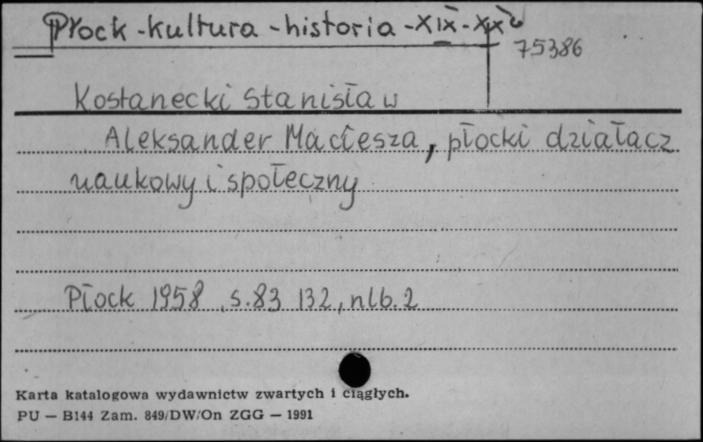 Płock - kultura - historia - XIX - XX w
75386
Kostanecki Stanisław
Aleksander Maciesza, płocki działacz
naukowy i społeczny
Płock 1958, s. 83 132, nlb. 2
Karta katalogowa wydawnictw zwartych i ciągłych.
PU — B144 Zam. 849/DW/On ZGG — 1991